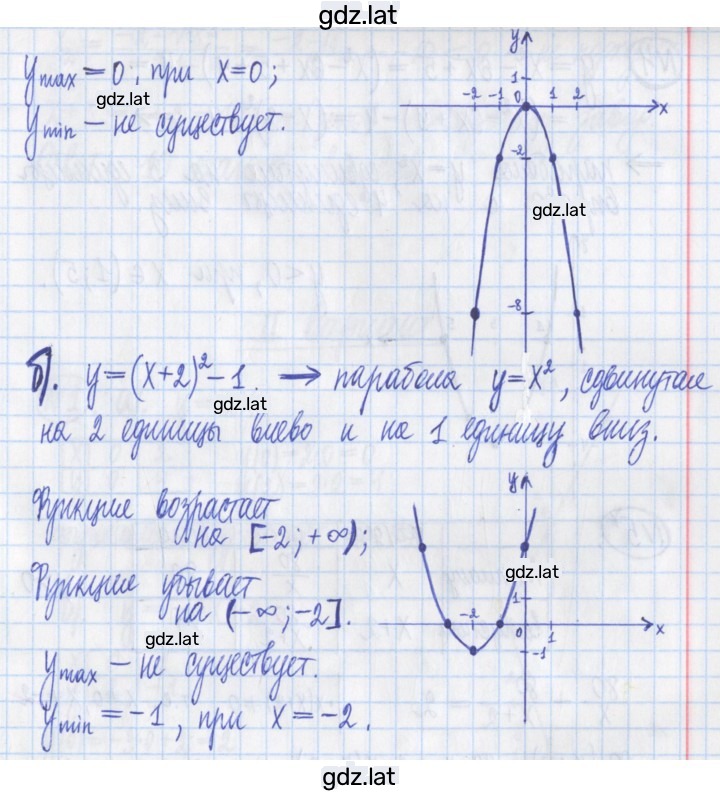 gdz.lat
y max = 0, при x=0;
gdz.lat
y min – не существует.
y
1
-2 -1 0 1 2 x
-2
gdz.lat
-8
б). y=(x+2)²-1. → парабола y=x², сдвинутая
gdz.lat
на 2 единицы влево и на 1 единицу вниз.
Функция возрастает
на [-2; +∞);
Функция убывает
на (-∞; -2].
gdz.lat
y max – не существует.
y min = -1, при x = -2.
y
gdz.lat
1
-2 0 1 x
-1
gdz.lat